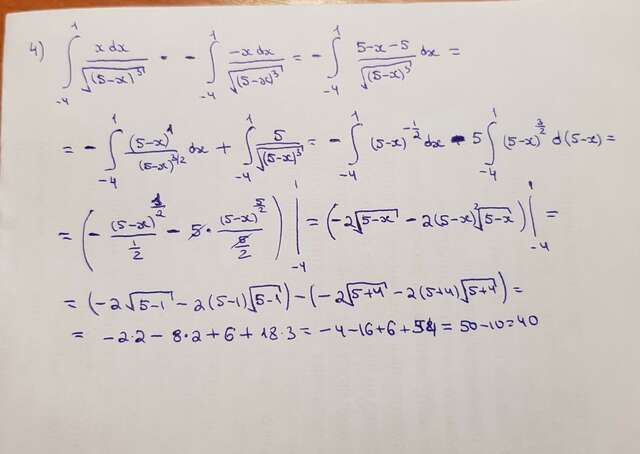 4) \int_{-4}^{1} \frac{x dx}{\sqrt{(5-x)^3}} = - \int_{-4}^{1} \frac{-x dx}{\sqrt{(5-x)^3}} = - \int_{-4}^{1} \frac{5-x-5}{\sqrt{(5-x)^3}} dx =
= - \int_{-4}^{1} \frac{(5-x)^1}{(5-x)^{3/2}} dx + \int_{-4}^{1} \frac{5}{\sqrt{(5-x)^3}} = - \int_{-4}^{1} (5-x)^{-\frac{1}{2}} dx - 5 \int_{-4}^{1} (5-x)^{\frac{3}{2}} d(5-x) =
= \left( - \frac{(5-x)^{\frac{1}{2}}}{\frac{1}{2}} - 5 \cdot \frac{(5-x)^{\frac{5}{2}}}{\frac{5}{2}} \right) \Big|_{-4}^{1} = (-2\sqrt{5-x} - 2(5-x)^2\sqrt{5-x}) \Big|_{-4}^{1} =
= (-2\sqrt{5-1} - 2(5-1)\sqrt{5-1}) - (-2\sqrt{5+4} - 2(5+4)\sqrt{5+4}) =
= -2·2 - 8·2 + 6 + 18·3 = -4 - 16 + 6 + 54 = 50 - 10 = 40